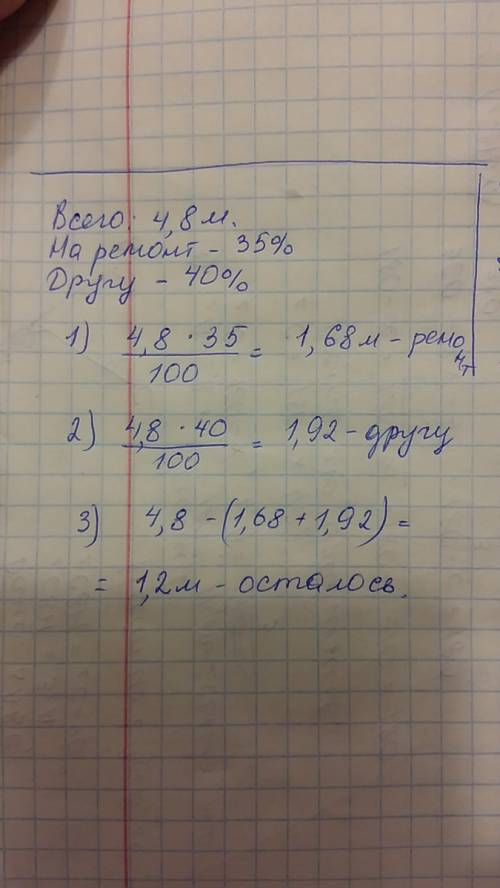 Всего: 4,8 м.
На ремонт - 35%
Другу - 40%
1) 4,8 · 35 / 100 = 1,68 м - ремонт
2) 4,8 · 40 / 100 = 1,92 - другу
3) 4,8 - (1,68 + 1,92) =
= 1,2 м - осталось.